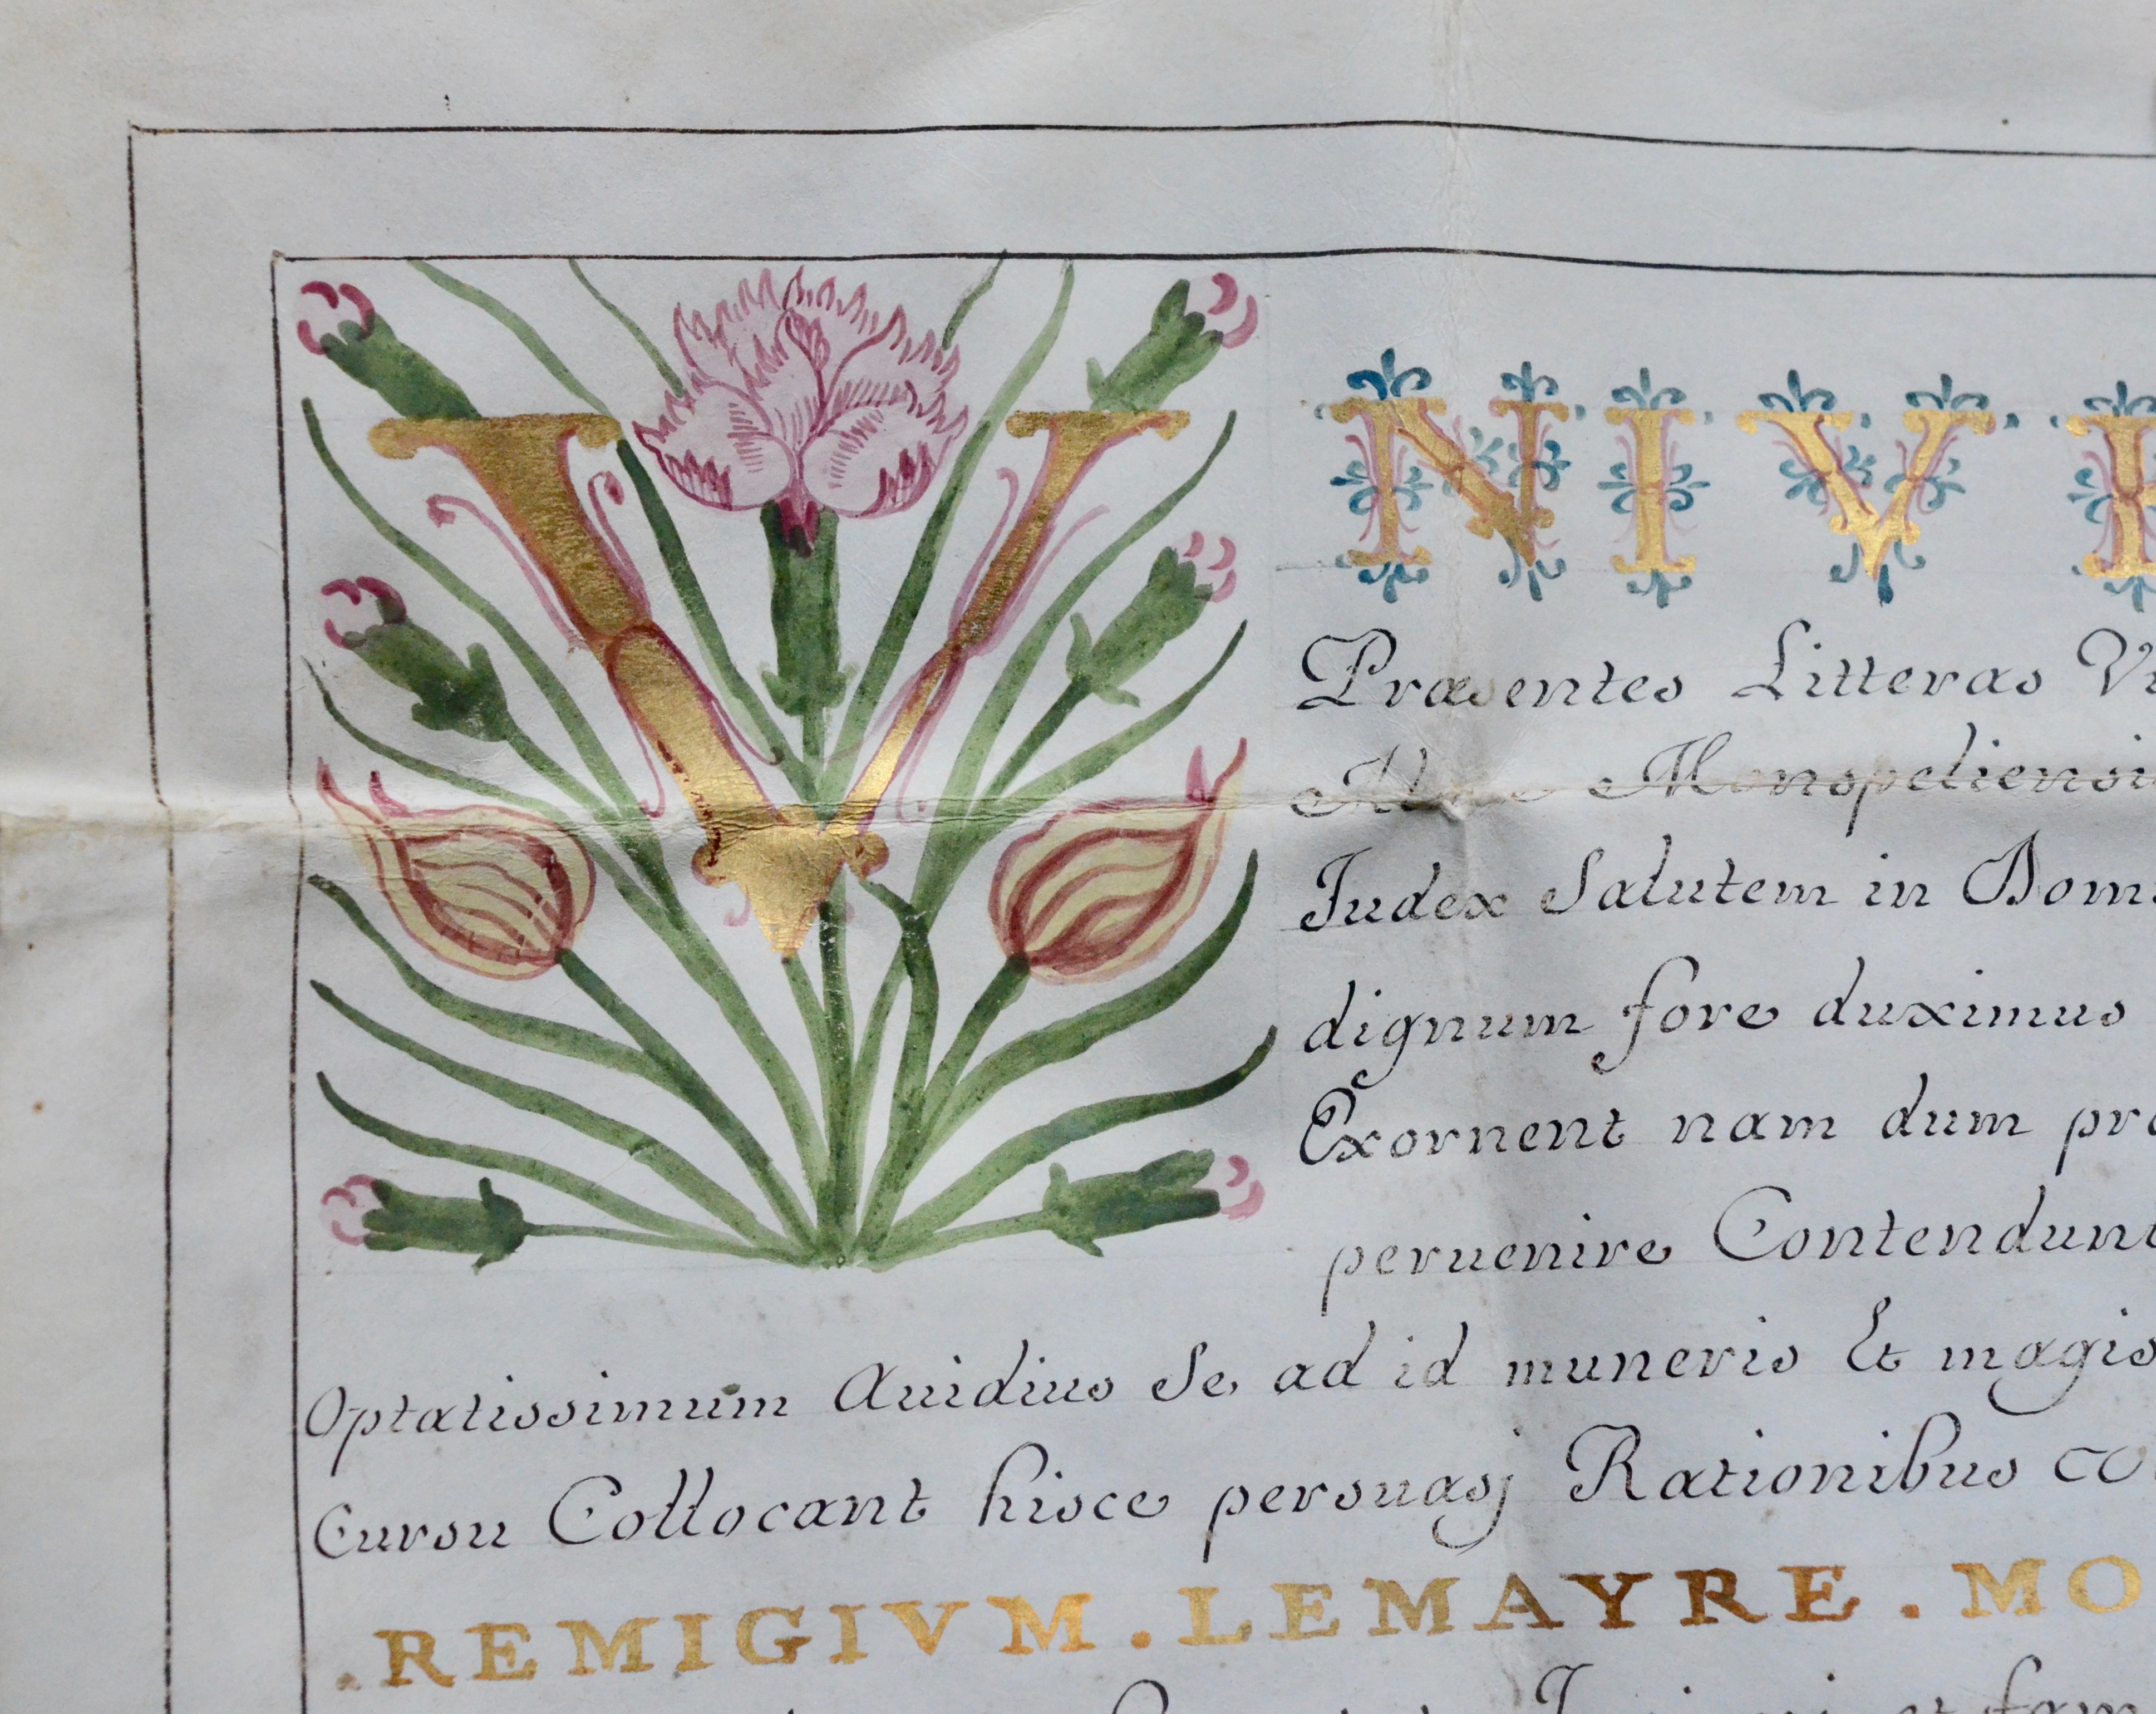 VNIV
Præsentes Litteras
Monspeliensi
Iudex Salutem in Dom
dignum fore duximus
Exornent nam dum pr
peruenire Contendunt
Optatissimum Auidius Se ad id muneris Et magis
Cursu Collocant hisce persuasj Rationibus
.REMIGIVM.LEMAYRE.MO
et fam